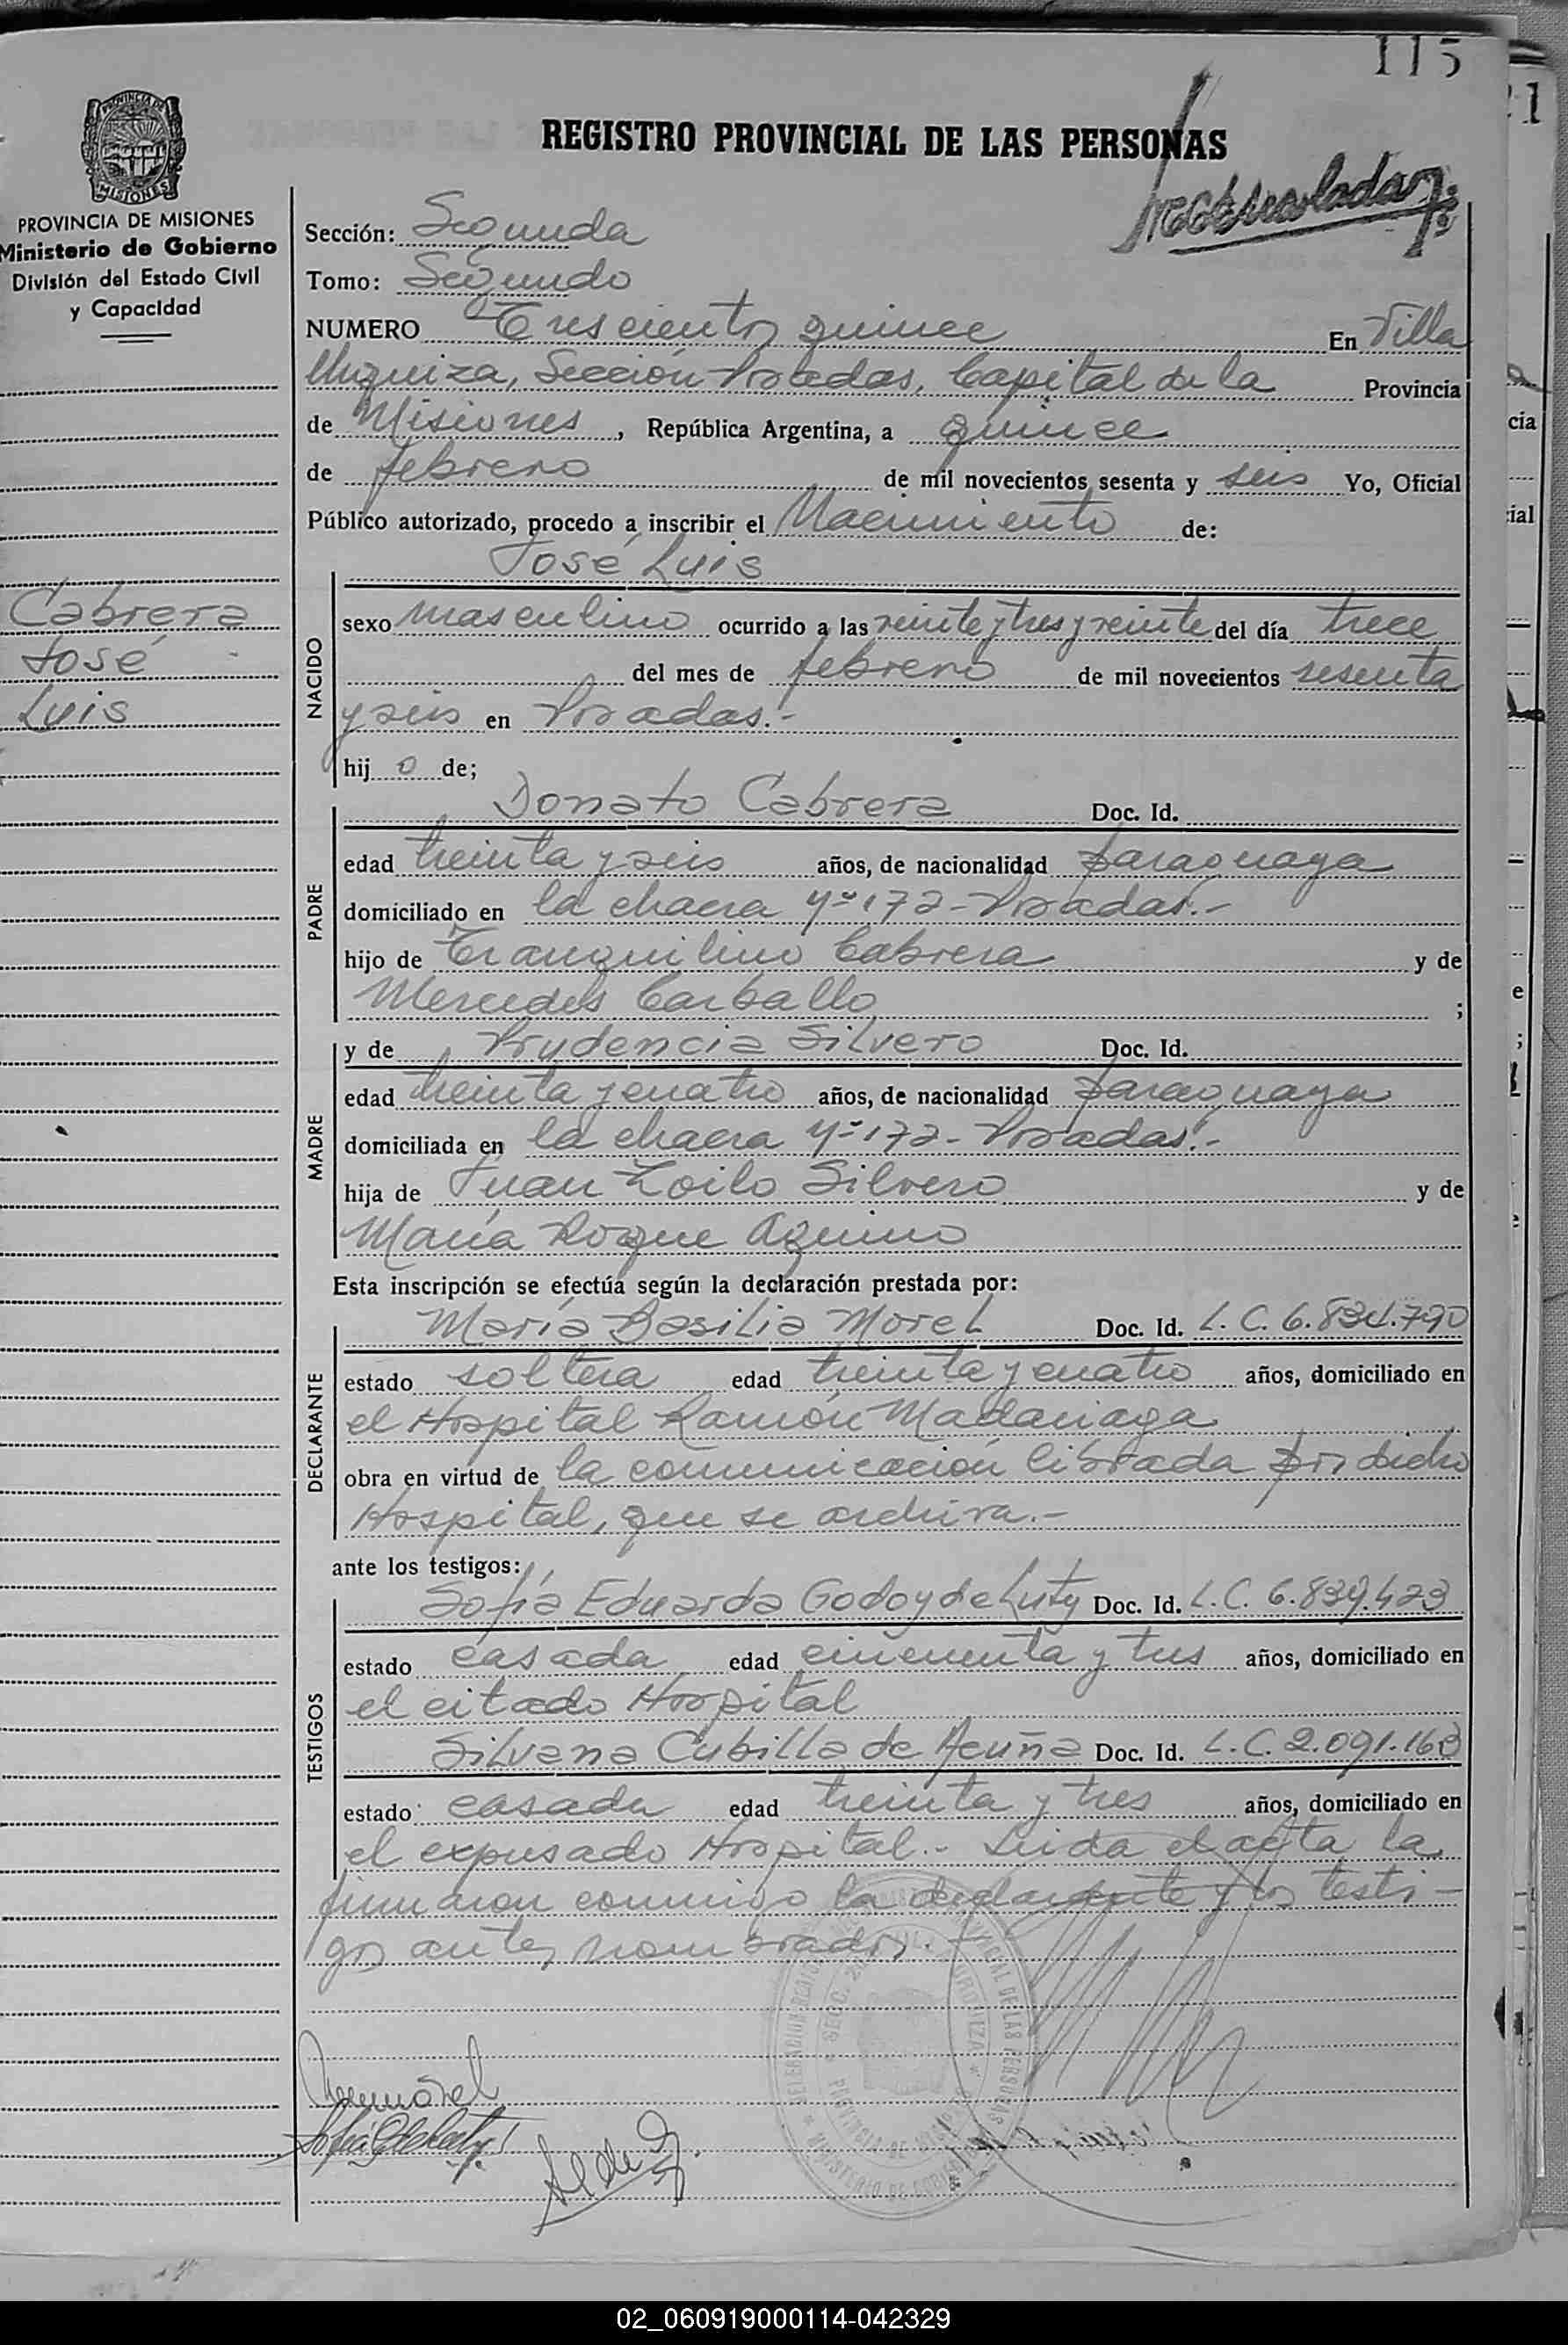 115
PROVINCIA DE
MISIONES
PROVINCIA DE MISIONES
Ministerio de Gobierno
División del Estado Civil
y Capacidad
Cabrera
José
Luis
REGISTRO PROVINCIAL DE LAS PERSONAS
Sección: Segunda
Tomo: Segundo
NUMERO Trescientos quince En Villa
Urquiza, Sección Posadas, Capital de la Provincia
de Misiones, República Argentina, a quince
de febrero de mil novecientos sesenta y seis Yo, Oficial
Público autorizado, procedo a inscribir el Nacimiento de:
NACIDO
José Luis
sexo masculino ocurrido a las veinte y tres y veinte del día trece
del mes de febrero de mil novecientos sesenta
y seis en Posadas.-
hijo de;
PADRE
Donato Cabrera Doc. Id.
edad treinta y seis años, de nacionalidad paraguaya
domiciliado en la chacra Nº 172 - Posadas.-
hijo de Tranquilino Cabrera y de
Mercedes Carballo ;
MADRE
y de Prudencia Silvero Doc. Id.
edad treinta y cuatro años, de nacionalidad paraguaya
domiciliada en la chacra Nº 172 - Posadas.-
hija de Juan Zoilo Silvero y de
María Roque Aquino
Esta inscripción se efectúa según la declaración prestada por:
DECLARANTE
María Basilia Morel Doc. Id. L. C. 6.834.790
estado soltera edad treinta y cuatro años, domiciliado en
el Hospital Ramón Madariaga
obra en virtud de la comunicación librada por dicho
Hospital, que se archiva.-
ante los testigos:
TESTIGOS
Sofía Eduarda Godoy de Luty Doc. Id. L. C. 6.839.423
estado casada edad cincuenta y tres años, domiciliado en
el citado Hospital
Silvana Cubilla de Acuña Doc. Id. L. C. 2.091.163
estado casada edad treinta y tres años, domiciliado en
el expresado Hospital.- Leida el acta la
firmaron conmigo la declarante y los testi-
gos antes nombrados.
02_060919000114-042329